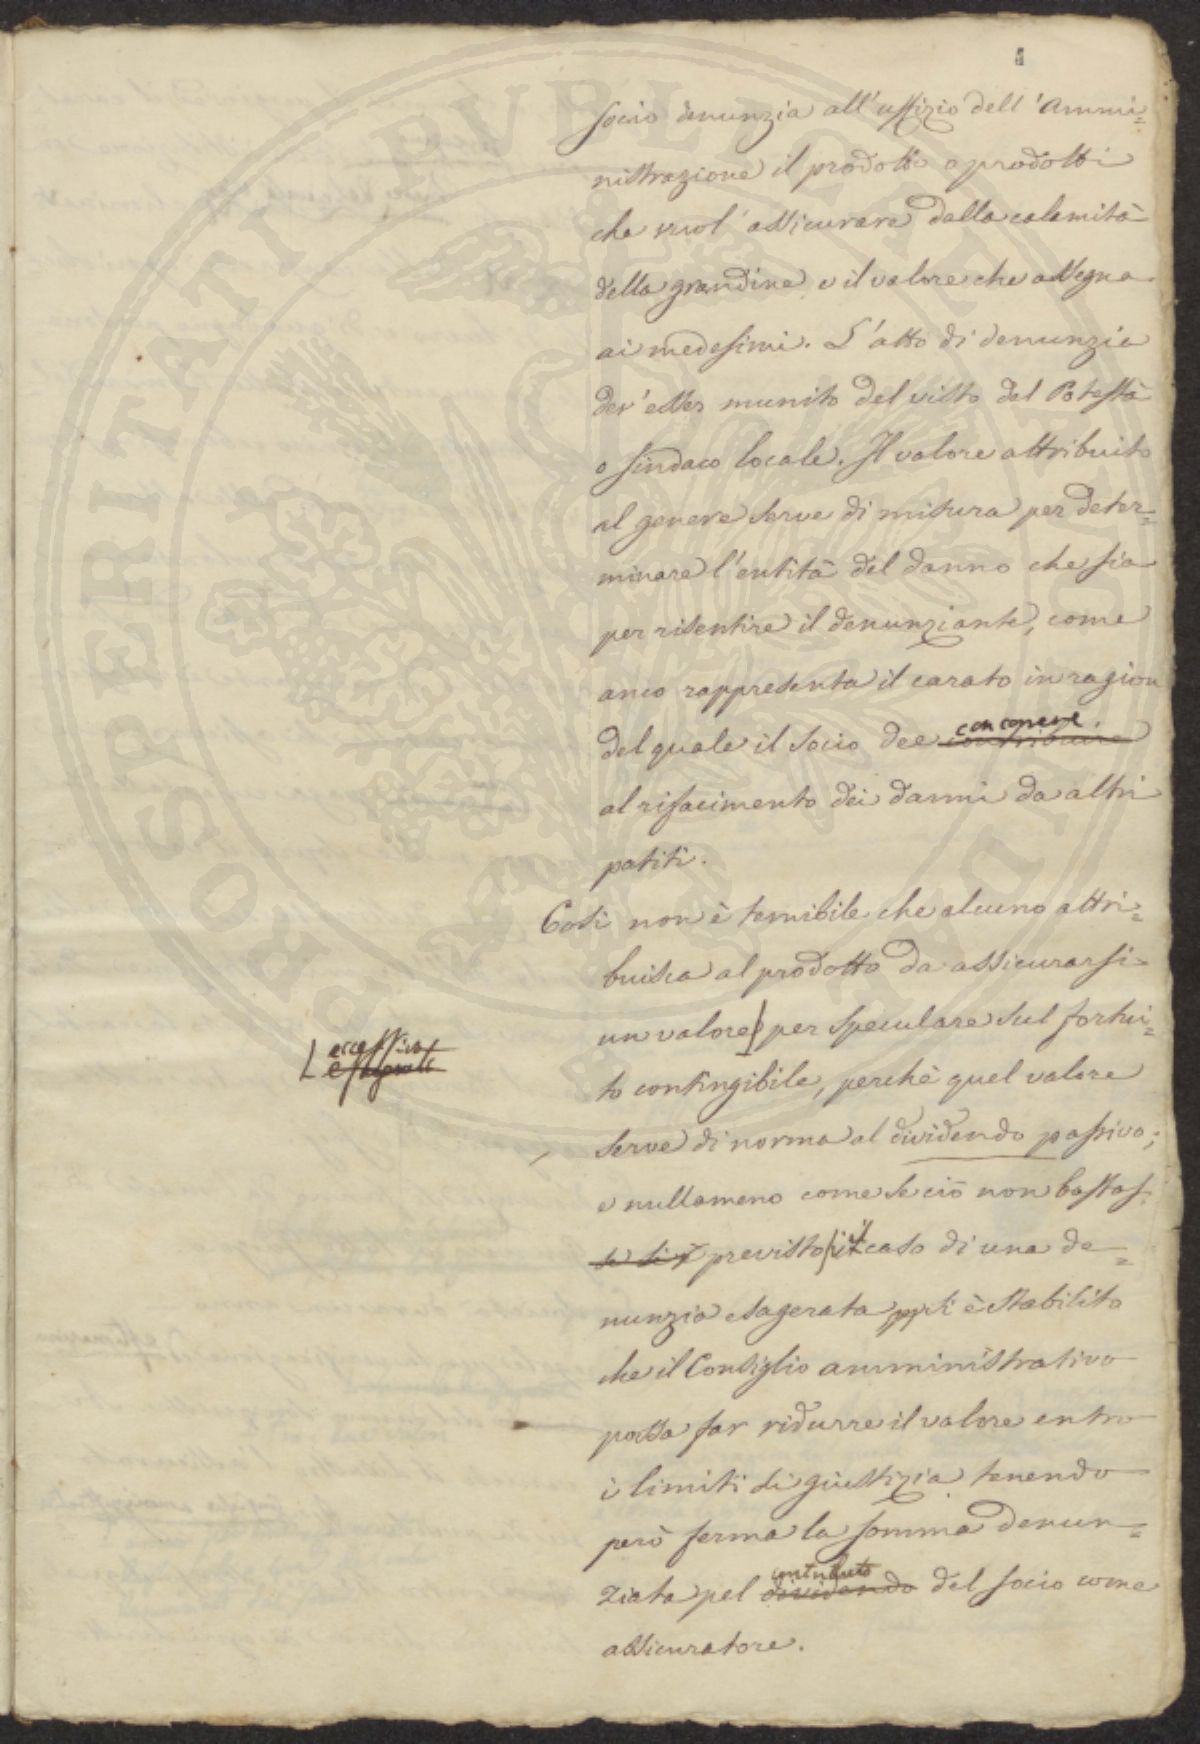 socio denunzia all'uffizio dell'Ammi=
nistrazione il prodotto o prodotti
che vuol' assicurare dalla calamità
della grandine e il valore che assegna
ai medesimi. L'atto di denunzia
dev'esser munito del visto del Potestà
o sindaco locale. Il valore attribuito
al genere serve di misura per deter=
minare l'entità del danno che sia
per risentire il denunziante, come
anco rappresenta il carato in ragion
concorrere
del quale il socio dee contribuire
al rifacimento dei danni da altri
patiti.
Così non è temibile che alcuno attri=
buisca al prodotto da assicurarsi
un valore per speculare sul fortui=
eccessivo
esagerato
to contingibile, perchè quel valore
serve di norma al dividendo passivo;
e nullameno come se ciò non bastas
se si previsto il caso di una de=
nunzia esagerata si è stabilito
che il Consiglio amministrativo
possa far ridurre il valore entro
i limiti di giustizia tenendo
però ferma la somma denun=
contributo
ziata pel dividendo del socio come
assicuratore.
PROSPERITATI PVBLICAE